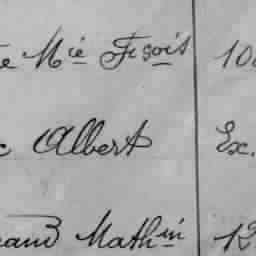 Mie Fçois 10
Albert Ex.
Mathin 12